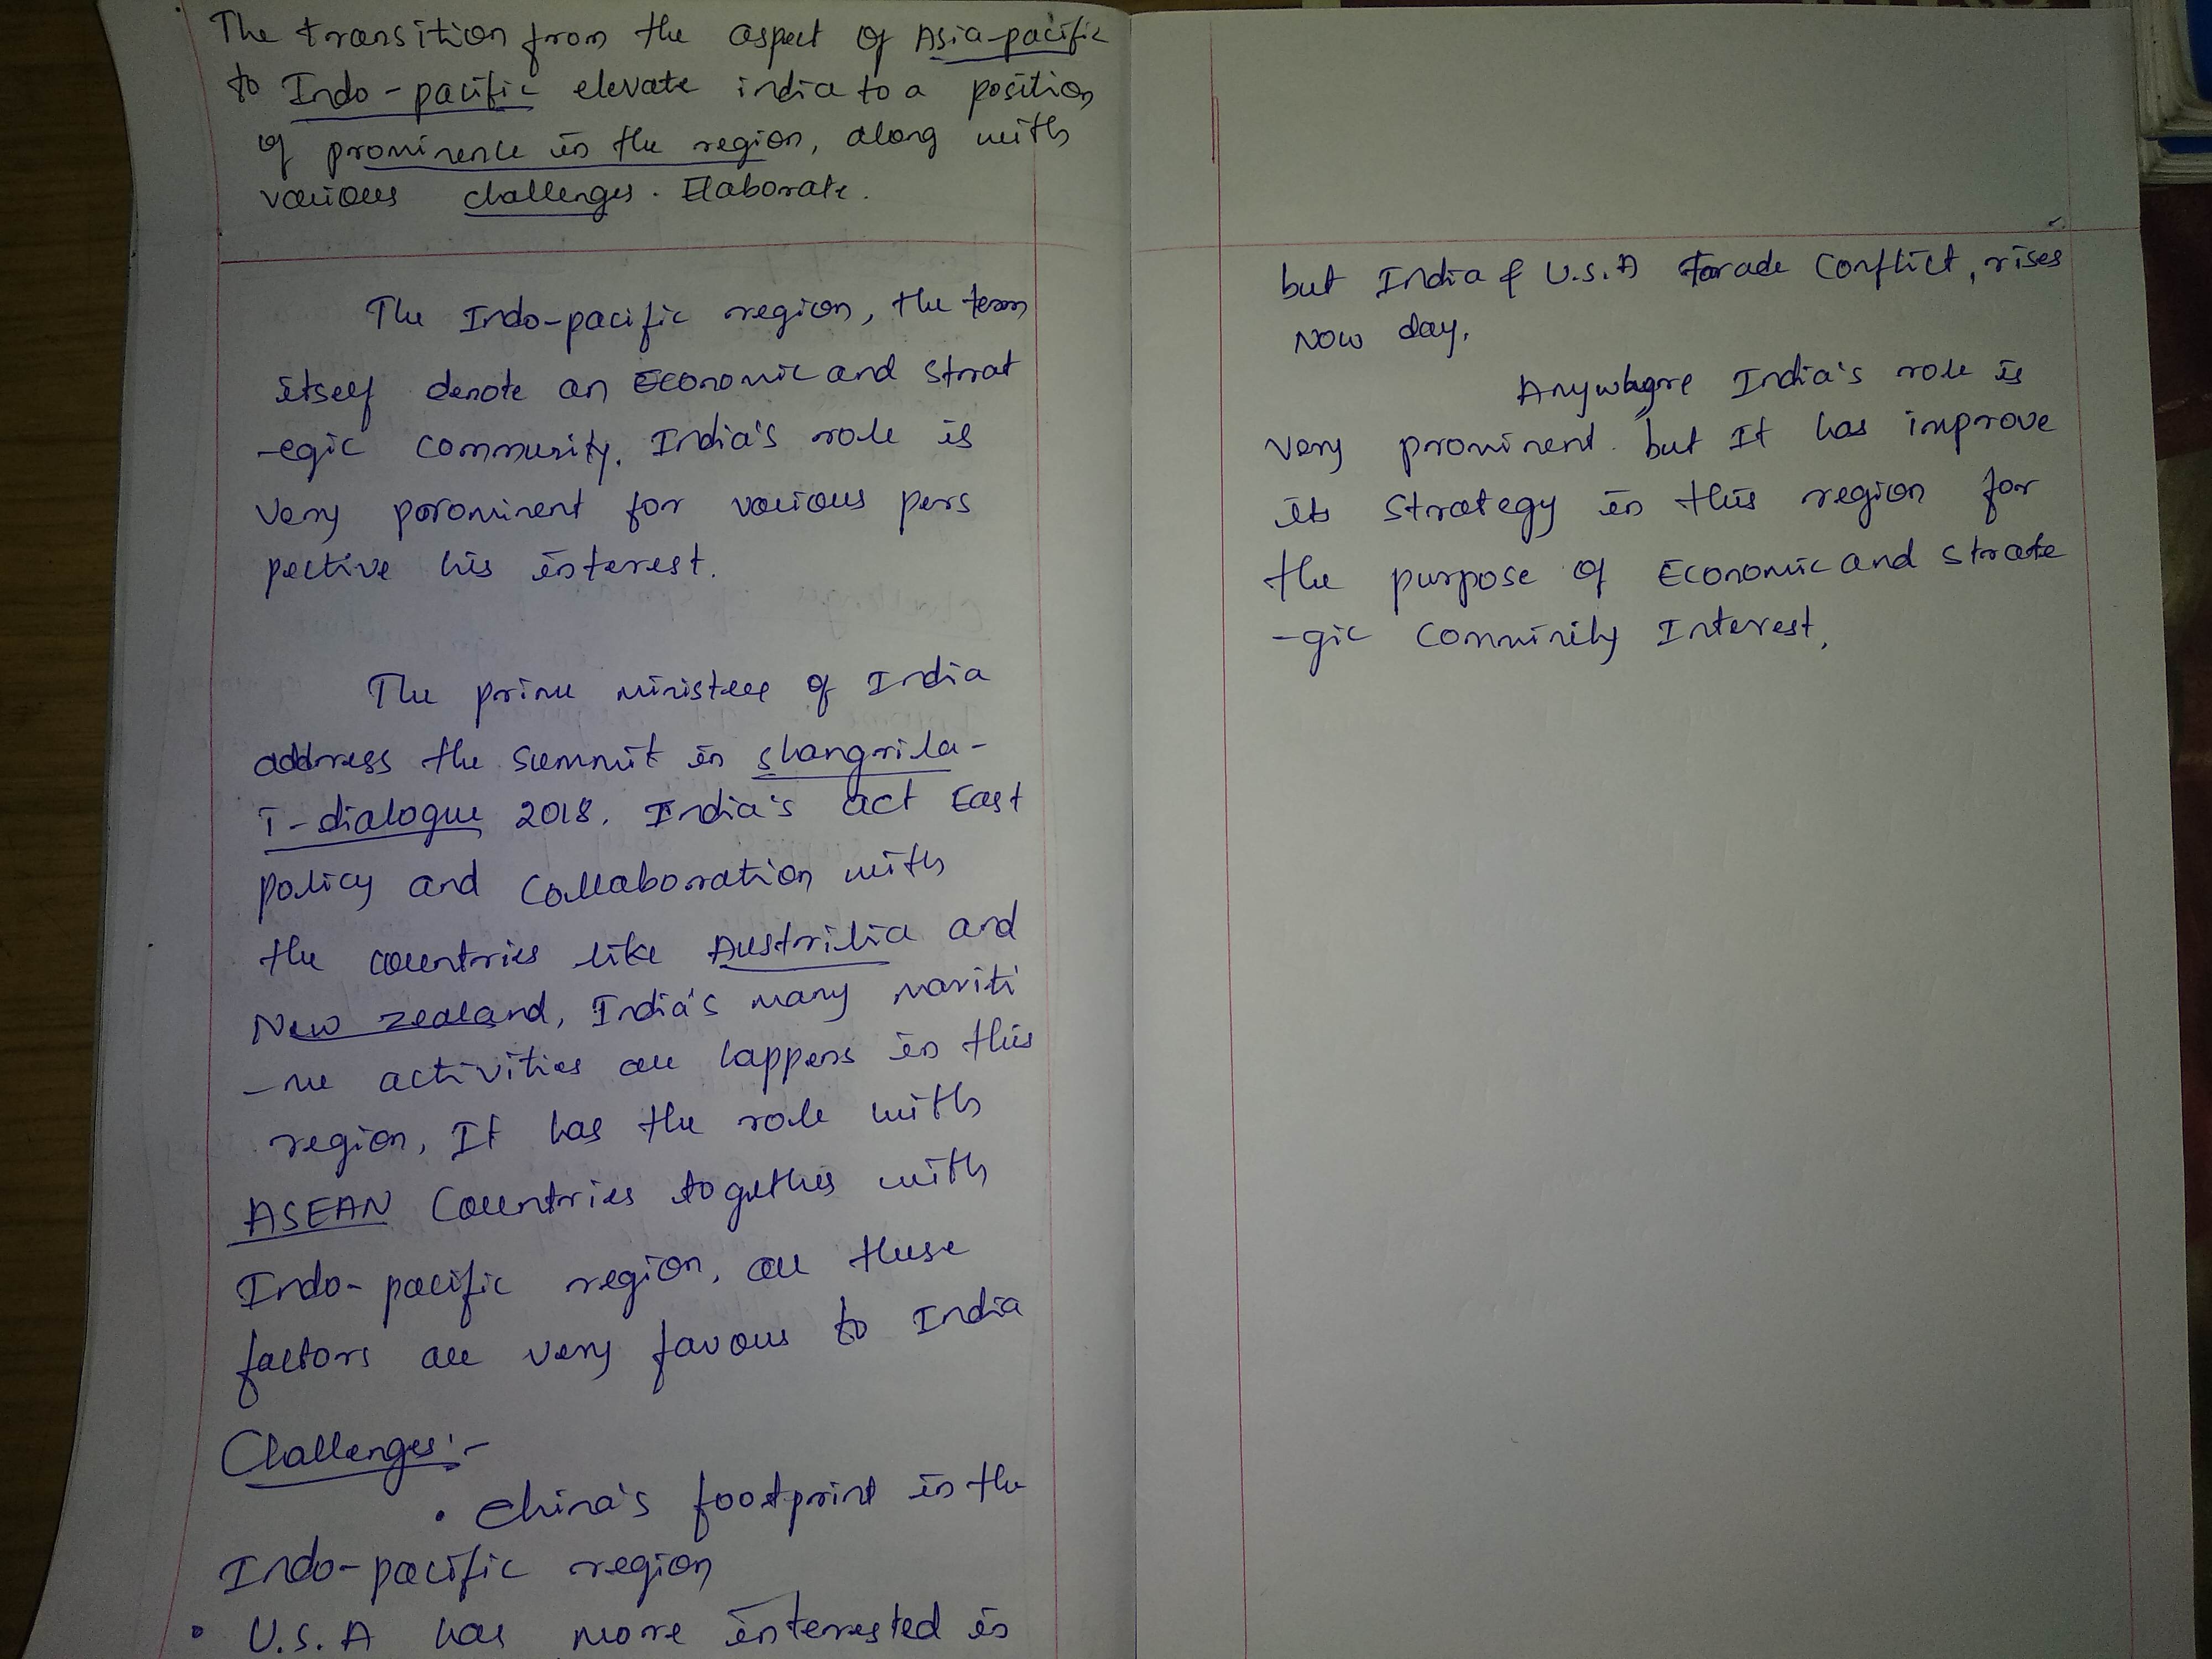 The transition from the aspect of Asia-pacific
to Indo-pacific elevate india to a position
of prominence in the region, along with
various challenges. Elaborate.
The Indo-pacific region, the term
itself denote an Economic and strat
-egic community. India's role is
very prominent for various pers
pective his interest.
The prime minister of India
address the summit in shangrila-
i-dialogue 2018. India's act East
policy and collaboration with
the countries like Austrilia and
New zealand, India's many mariti
-me activities are happens in this
region, It has the role with
ASEAN Countries together with
Indo-pacific region, all these
factors are very favour to India
Challenges:-
• China's footprint in the
Indo-pacific region
• U.S.A has more interested in
but India & U.S.A trade conflict, rises
Now day.
Anywhere India's role is
very prominent. but It has improve
its strategy in this region for
the purpose of Economic and strate
-gic Comminity Interest.